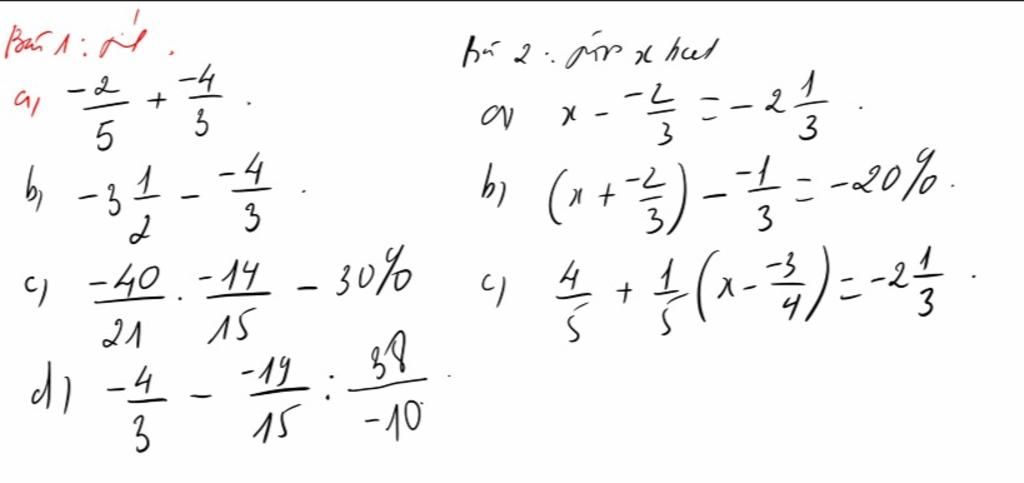 Bài 1: Tính.
a) \frac{-2}{5} + \frac{-4}{3}.
b) -3\frac{1}{2} - \frac{-4}{3}.
c) \frac{-40}{21} . \frac{-14}{15} - 30%
d) \frac{-4}{3} - \frac{-19}{15} : \frac{38}{-10}.
Bài 2: Tìm x biết
a) x - \frac{-2}{3} = -2\frac{1}{3}.
b) (x + \frac{-2}{3}) - \frac{-1}{3} = -20%.
c) \frac{4}{5} + \frac{1}{5}(x - \frac{-3}{4}) = -2\frac{1}{3}.